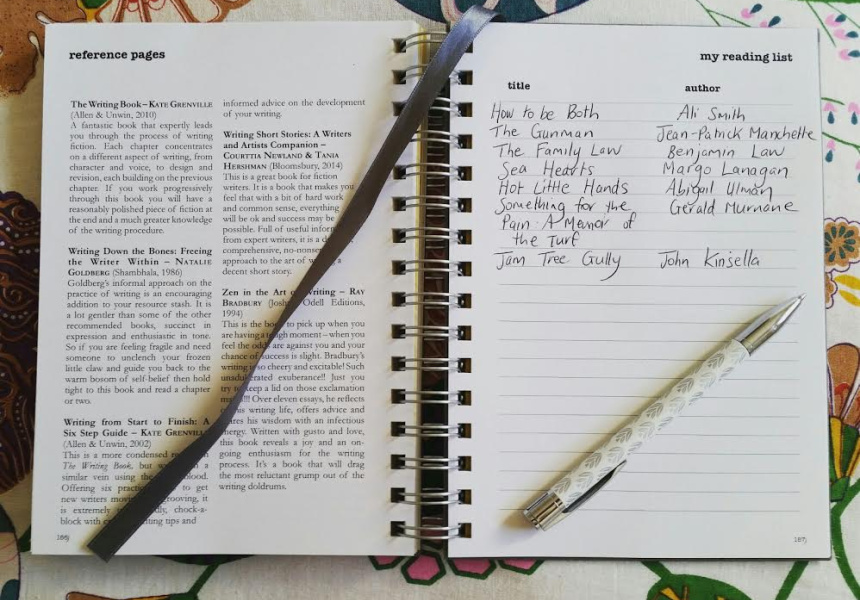 reference pages
The Writing Book – KATE GRENVILLE
(Allen & Unwin, 2010)
A fantastic book that expertly leads
you through the process of writing
fiction. Each chapter concentrates
on a different aspect of writing, from
character and voice, to design and
revision, each building on the previous
chapter. If you work progressively
through this book you will have a
reasonably polished piece of fiction at
the end and a much greater knowledge
of the writing procedure.
Writing Down the Bones: Freeing
the Writer Within – NATALIE
GOLDBERG (Shambhala, 1986)
Goldberg's informal approach on the
practice of writing is an encouraging
addition to your resource stash. It is
a lot gentler than some of the other
recommended books, succinct in
expression and enthusiastic in tone.
So if you are feeling fragile and need
someone to unclench your frozen
little claw and guide you back to the
warm bosom of self-belief then hold
tight to this book and read a chapter
or two.
Writing from Start to Finish: A
Six Step Guide – KATE GRENVILLE
(Allen & Unwin, 2002)
This is a more condensed
The Writing Book, but a
similar vein using the blood.
Offering six to get
new writers grooving, it
is extremely chock-a-
block with writing tips and
informed advice on the development
of your writing.
Writing Short Stories: A Writers
and Artists Companion –
COURTTIA NEWLAND & TANIA
HERSHMAN (Bloomsbury, 2014)
This is a great book for fiction
writers. It is a book that makes you
feel that with a bit of hard work
and common sense, everything
will be ok and success may be
possible. Full of useful
from expert writers, it is a
comprehensive, no-nonsense
approach to the art of a
decent short story.
Zen in the Art of Writing – RAY
BRADBURY (Joshua Odell Editions,
1994)
This is the book to pick up when you
are having a rough moment – when you
feel the odds are against you and your
chance of success is slight. Bradbury's
writing is so cheery and excitable! Such
unadulterated exuberance!! Just you
try to keep a lid on those exclamation
Over eleven essays, he reflects
on his writing life, offers advice and
shares his wisdom with an infectious
energy. Written with gusto and love,
this book reveals a joy and an on-
going enthusiasm for the writing
process. It's a book that will drag
the most reluctant grump out of the
writing doldrums.
my reading list
title author
How to be Both Ali Smith
The Gunman Jean-Patrick Manchette
The Family Law Benjamin Law
Sea Hearts Margo Lanagan
Hot Little Hands Abigail Ulman
Something for the Gerald Murnane
Pain: A Memoir of
the Turf
Jam Tree Gully John Kinsella
167